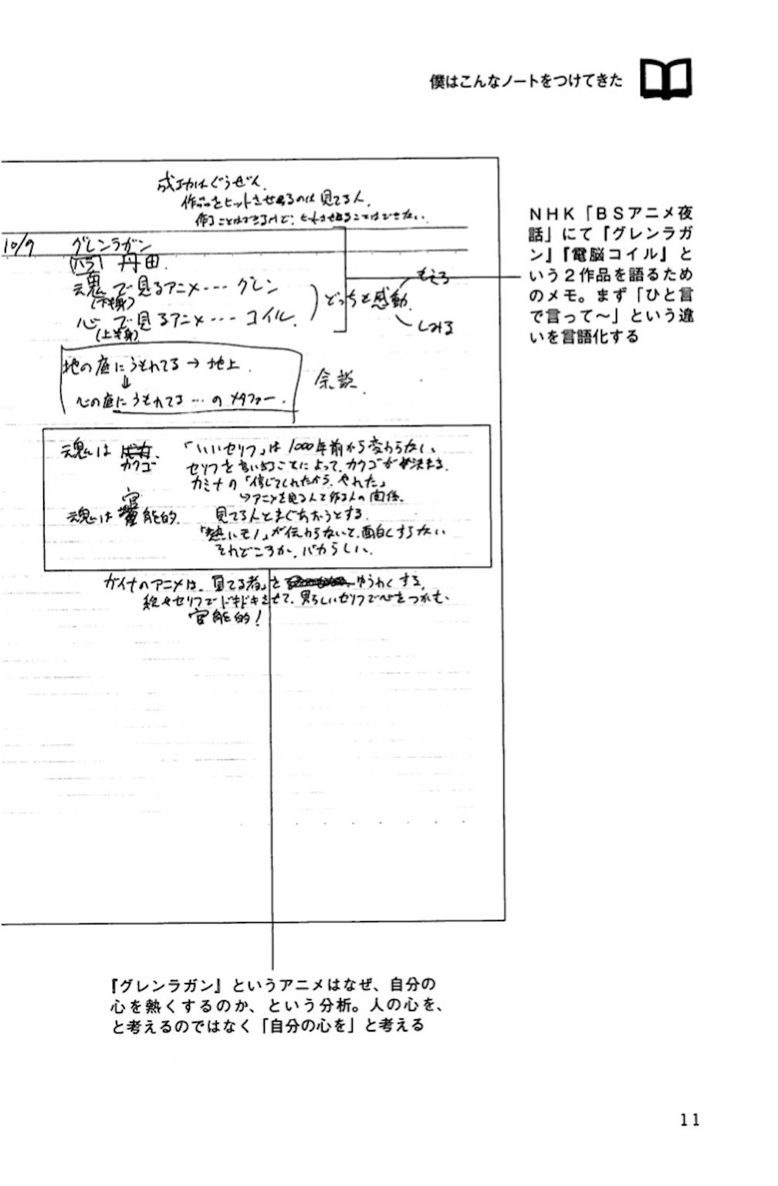 僕はこんなノートをつけてきた
成功はぐうぜん.
作品をヒットさせるのは見てる人.
作ることはできるけど、ヒットさせることはできない.
10/9 グレンラガン
ハラ 丹田.
魂で見るアニメ・・・グレン
(下半身)
心で見るアニメ・・・コイル.
(上半身)
どっちも感動
もえる
しみる
地の底にうもれてる→地上.
↓
心の底にうもれてる…のメタファー.
余談.
魂は
カクゴ
「いいセリフ」は1000年前から変わらない.
セリフを言い切ることによって、カクゴが決まる.
カミナの「信じてくれたから、やれた」
↳アニメを見る人と作る人の関係.
魂は官能的.
見てる人とまぐあおうとする.
「熱いモノ」が伝わらないと、面白くすらない
それどころか、バカらしい.
ガイナのアニメは、見てる者を ゆうわくする.
絵やセリフでドキドキさせて、男らしいセリフで心をつかむ.
官能的!
NHK「BSアニメ夜
話」にて『グレンラガ
ン』『電脳コイル』と
いう2作品を語るため
のメモ。まず「ひと言
で言って〜」という違
いを言語化する
『グレンラガン』というアニメはなぜ、自分の
心を熱くするのか、という分析。人の心を、
と考えるのではなく「自分の心を」と考える
11